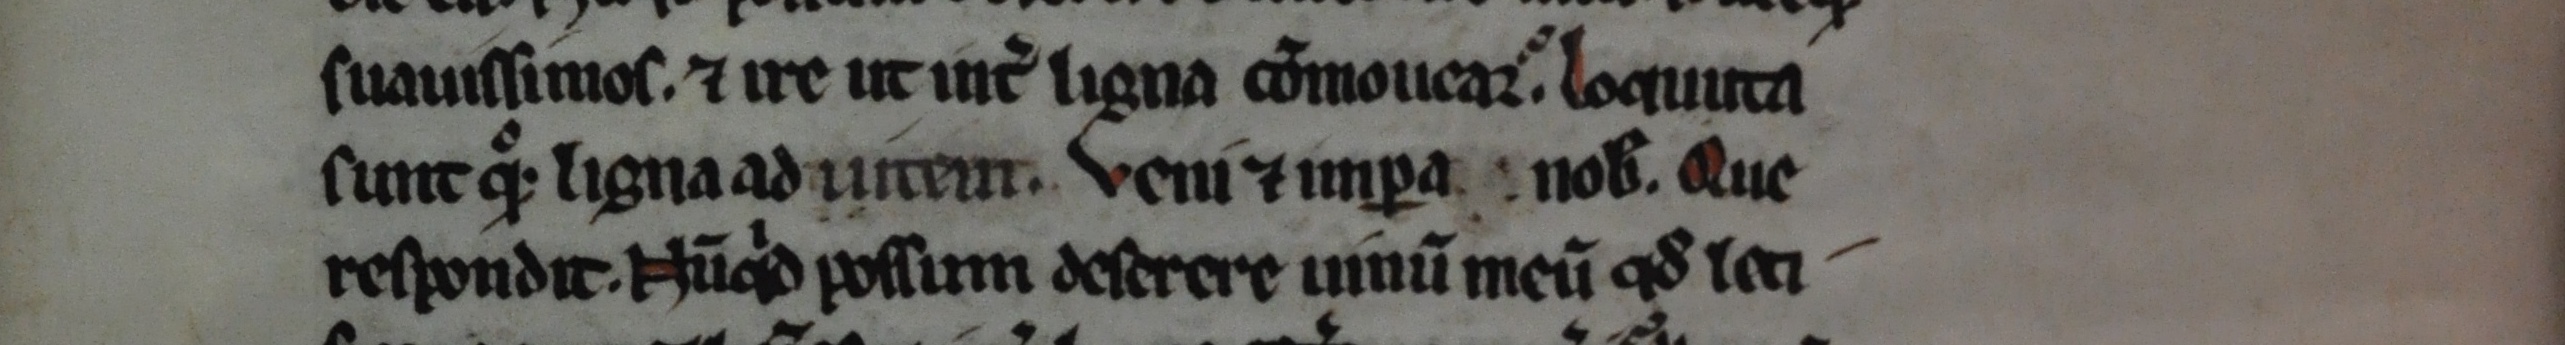 suauissimos. ⁊ ire ut int̃ ligna cõmouear᷑. Loquuta
sunt qͦꝫ ligna ad uitem. Veni ⁊ imꝑa nob̃. Que
respondit. Nũqͥd possum deserere uinũ meũ qđ leti